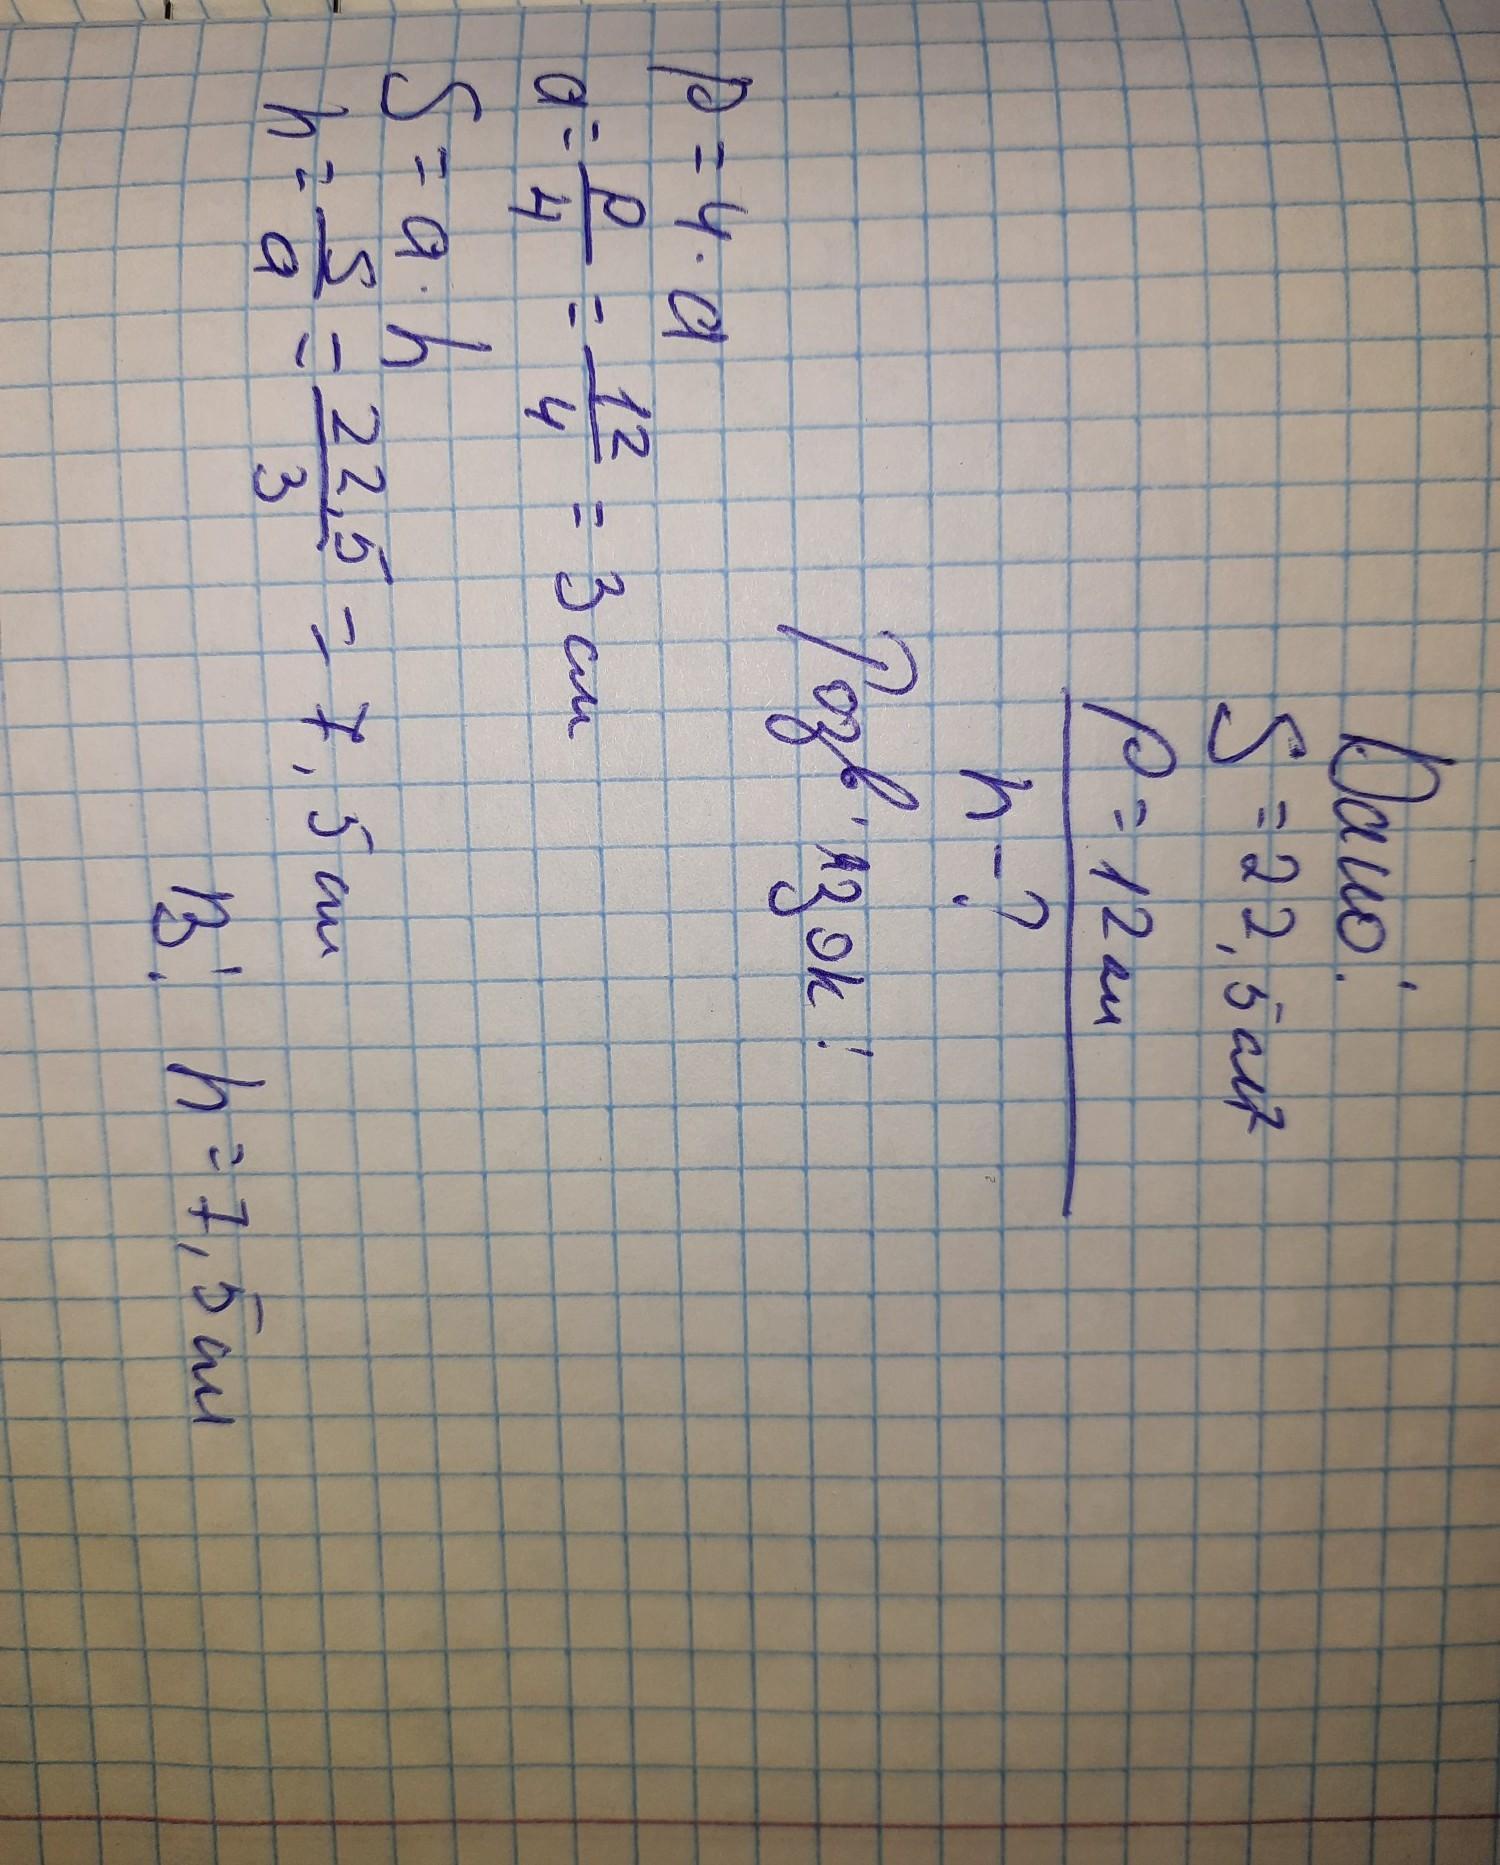 Дано:
S = 22,5 см²
P = 12 см
h - ?
Розв'язок:
P = 4 · a
a = P/4 = 12/4 = 3 см
S = a · h
h = S/a = 22,5/3 = 7,5 см
В: h = 7,5 см